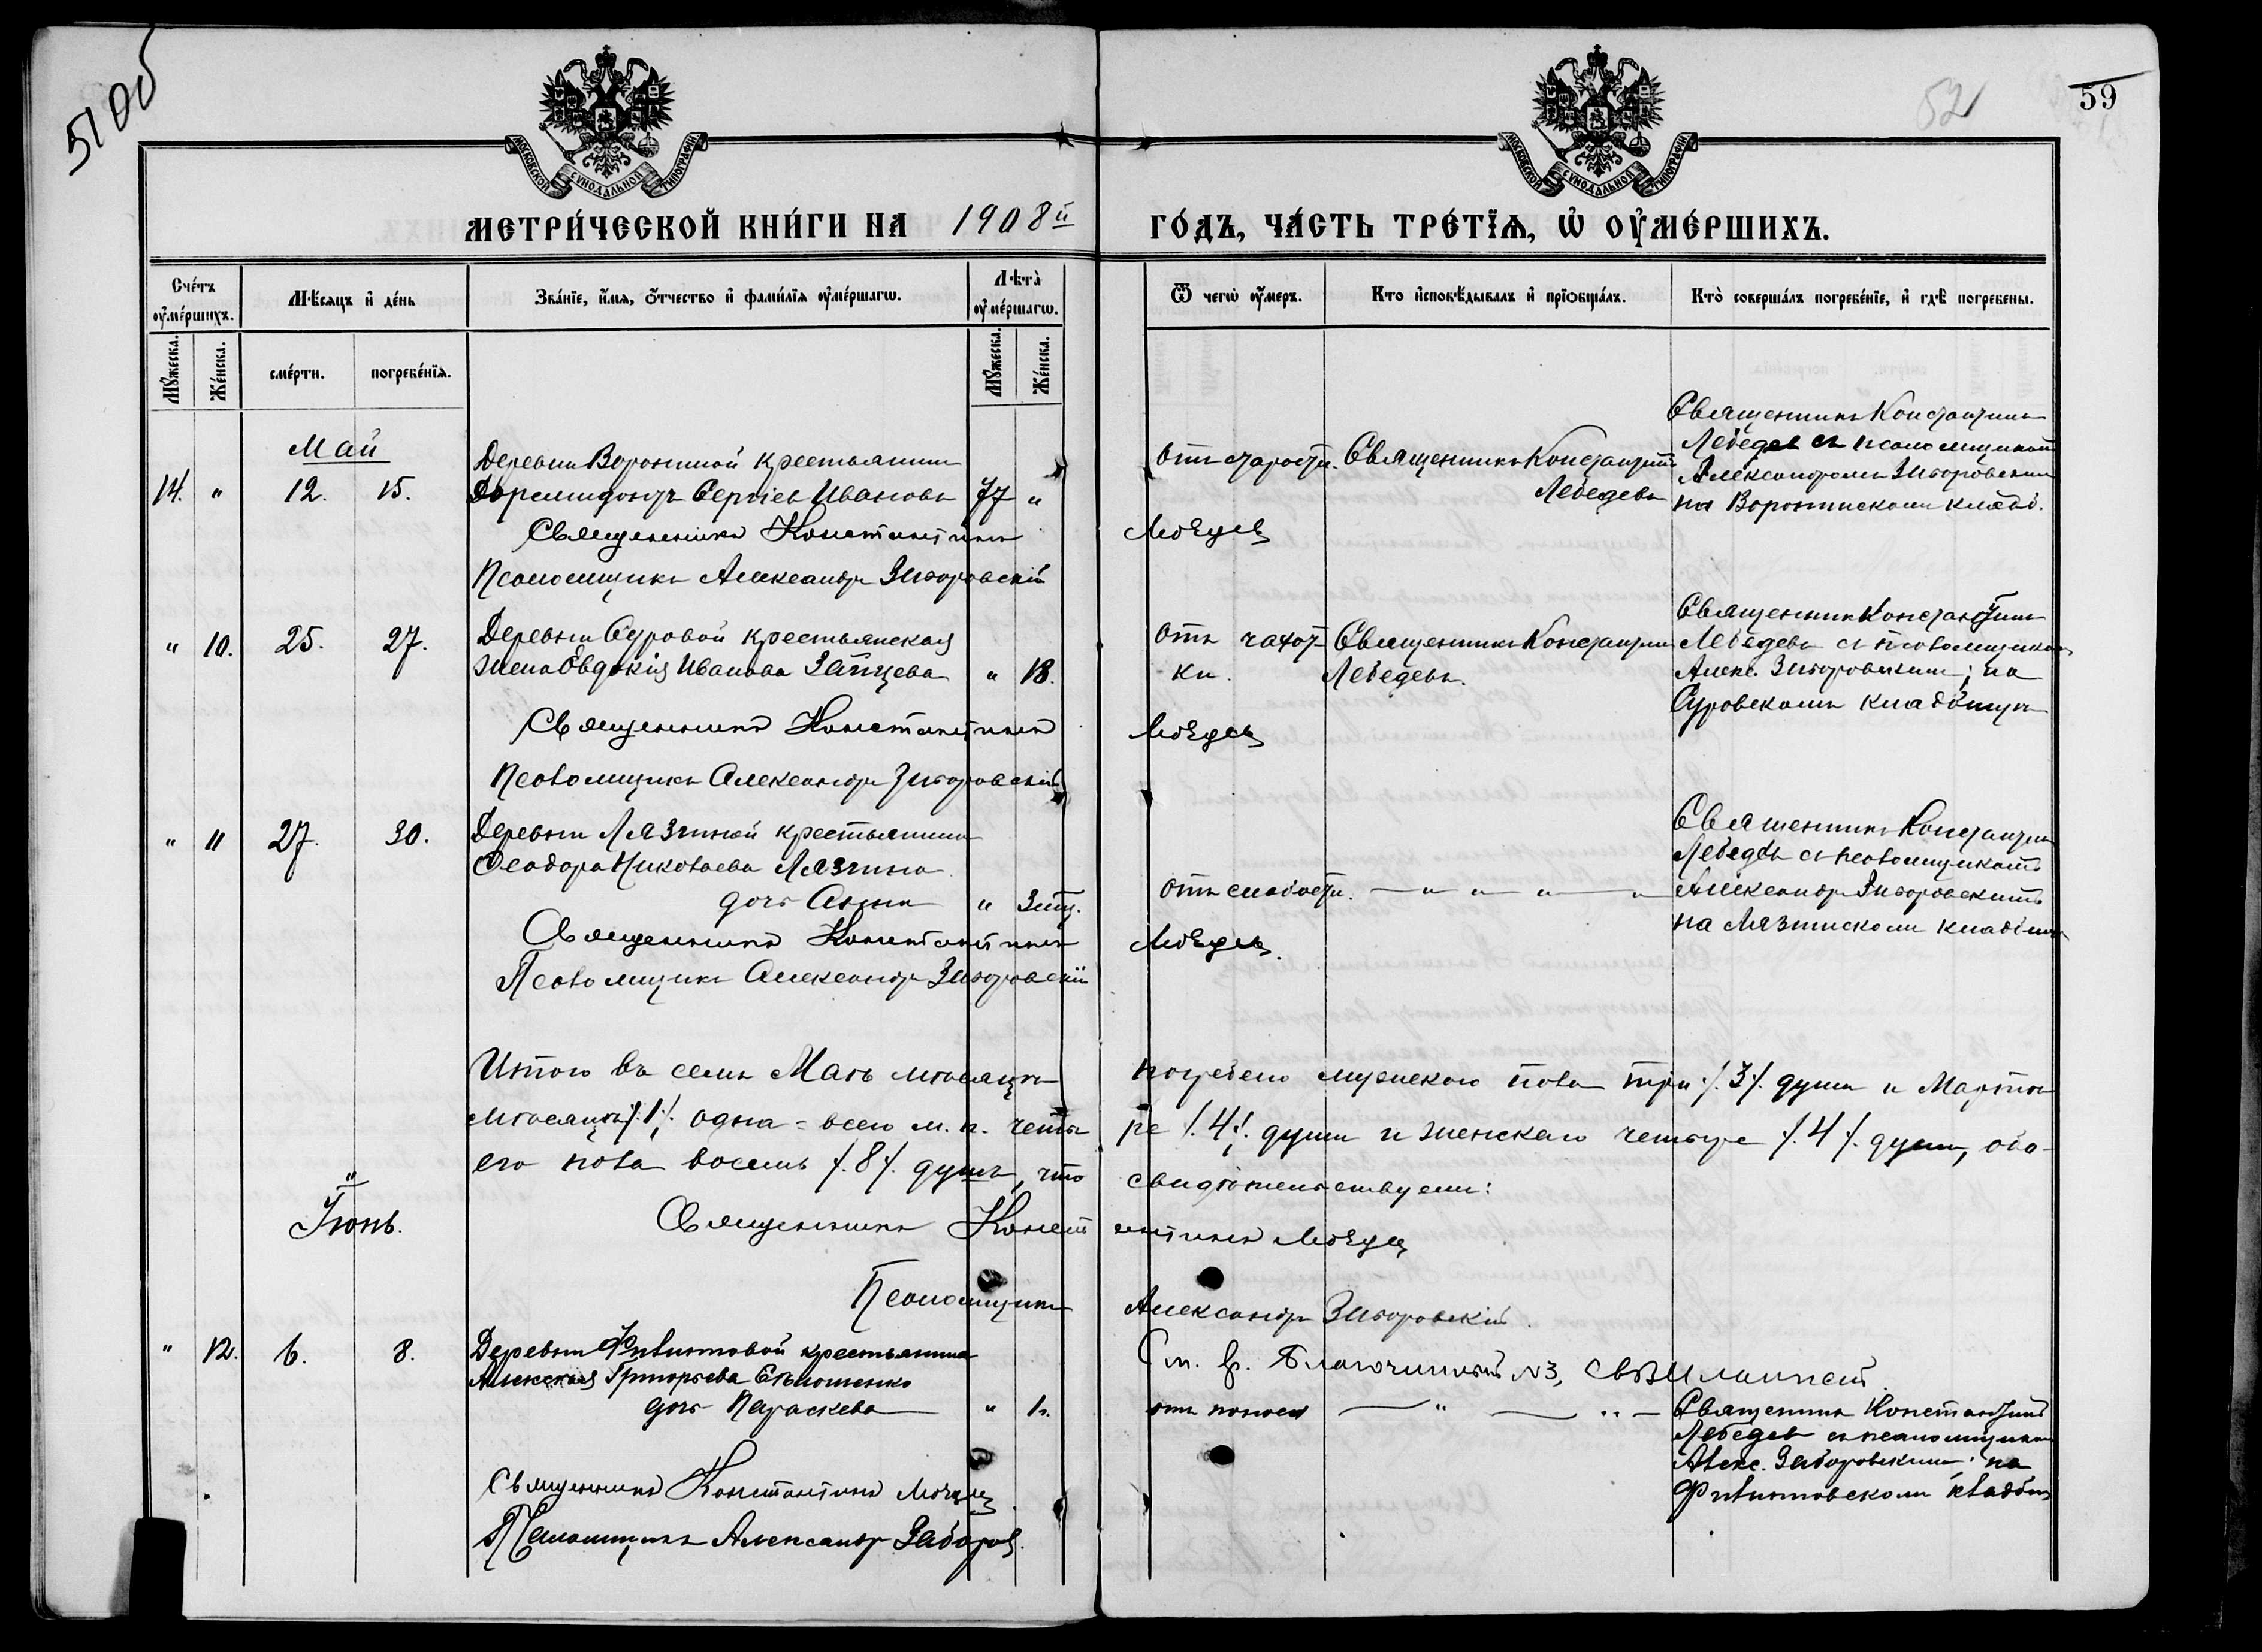 51об
52
59
МОСКОВСКОЙ СУНОДАЛЬНОЙ ТИПОГРАФІИ
МОСКОВСКОЙ СУНОДАЛЬНОЙ ТИПОГРАФІИ
МЕТРИ́ЧЕСКОЙ КНИ́ГИ НА 1908й ГО́ДЪ, ЧА́СТЬ ТРЕ́ТЇѦ, Ѡ҆ ОУ҆МЕ́РШИХЪ.
Сче́тъ оу҆ме́ршихъ.
Мꙋ́жеска.
Же́нска.
Мѣ́сяцъ и҆ де́нь
сме́рти.
погребе́нїѧ.
Зва́нїе, и҆́мѧ, ѻ҆́тчество и҆ фами́лїѧ оу҆ме́ршагѡ.
Лѣ́та оу҆ме́ршагѡ.
Мꙋ́жеска.
Же́нска.
Ѿ чегѡ̀ оу҆́меръ.
Кто̀ и҆сповѣ́дывалъ и҆ прїѡбща́лъ.
Кто̀ соверша́лъ погребе́нїе, и҆ гдѣ̀ погребены.
Май
14. " 12. 15.
Деревни Ворониной крестьянинъ
Дормидонтъ Сергіевъ Ивановъ 77 "
Священникъ Константинъ Лебедевъ
Псаломщикъ Александръ Заборовскій
отъ старости.
Священникъ Константинъ
Лебедевъ
Священникъ Константинъ
Лебедевъ съ псаломщикомъ
Александромъ Заборовскимъ
на Воронинскомъ кладб.
" 10. 25. 27.
Деревни Суровой крестьянская
жена Евдокія Иванова Зайцева " 18.
Священникъ Константинъ Лебедевъ
Псаломщикъ Александръ Заборовскій
отъ чахот-
ки.
Священникъ Константинъ
Лебедевъ.
Священникъ Константинъ
Лебедевъ съ псаломщикомъ
Алекс. Заборовскимъ; на
Суровскомъ кладбищѣ
" 11 27. 30.
Деревни Лязгиной крестьянина
Ѳеодора Николаева Лязгина
дочь Анна " 3 мѣс.
Священникъ Константинъ Лебедевъ.
Псаломщикъ Александръ Заборовскій
отъ слабости. — " " " "
Священникъ Константинъ
Лебедевъ съ псаломщикомъ
Александр. Заборовскимъ
на Лязгинскомъ кладбищѣ
Итого въ семъ Маѣ мѣсяцѣ погребено мужескаго пола три /.3/. души и Мартѣ
мѣсяцѣ /.1/. одна = всего м. п. четыре /.4/. души и женскаго четыре /.4/. души, обо-
его пола восемь /.8/. душъ, что свидѣтельствуемъ:
Священникъ Константинъ Лебедевъ
Псаломщикъ Александръ Заборовскій.
"
Іюнь.
См. Благочинный №3, свящ.
" 12. 6. 8.
Деревни Филипповой крестьянина
Алексѣя Григорьева
дочь Параскева " 1 г.
отъ поноса — " — " —
Священникъ Константинъ
Лебедевъ съ псаломщикомъ
Алекс. Заборовскимъ; на
Филипповскомъ кладбищѣ
Священникъ Константинъ Лебедевъ
Псаломщикъ Александръ Заборов.